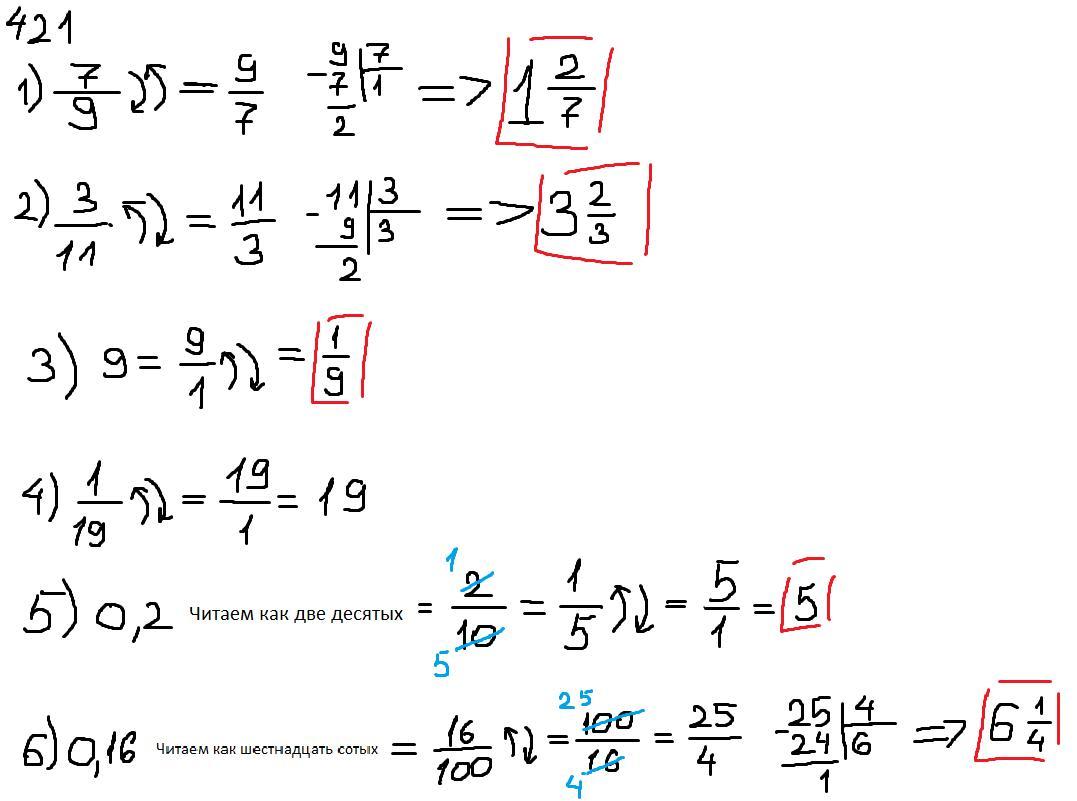 421
1) 7/9 = 9/7 - 9 7 7 1 2 => 1 2/7
2) 3/11 = 11/3 - 11 3 9 3 2 => 3 2/3
3) 9 = 9/1 = 1/9
4) 1/19 = 19/1 = 19
5) 0,2 Читаем как две десятых = 1 2/10 5 = 1/5 = 5/1 = 5
6) 0,16 Читаем как шестнадцать сотых = 16/100 = 25 100/16 4 = 25/4 - 25 4 24 6 1 => 6 1/4